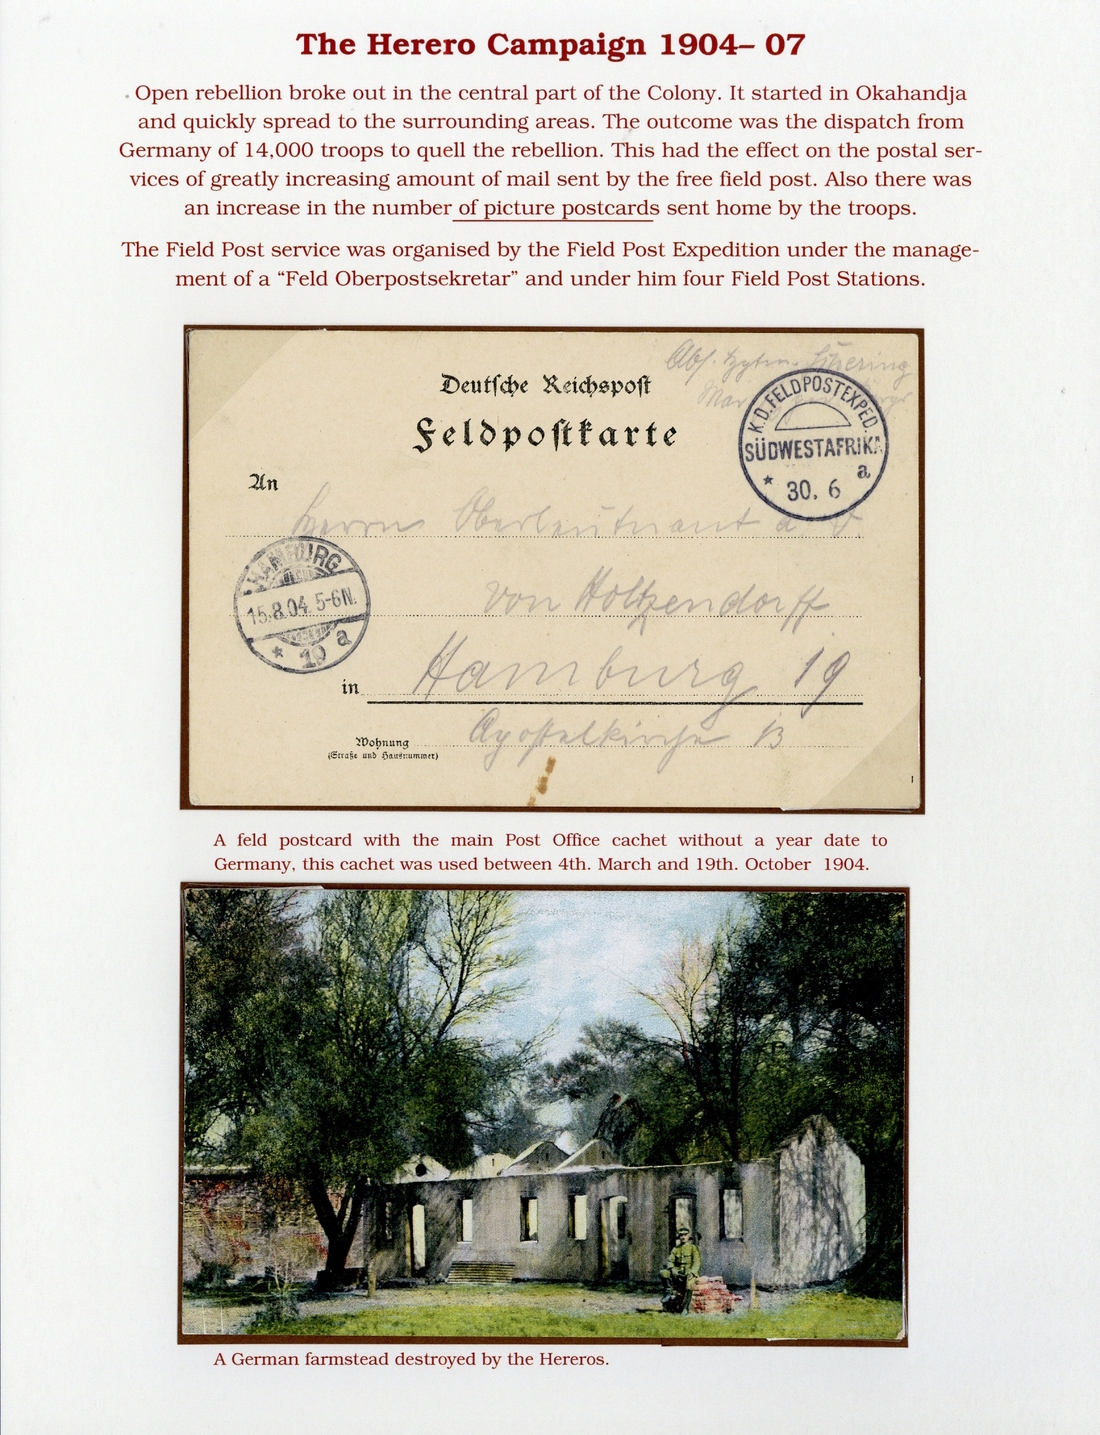 The Herero Campaign 1904– 07
Open rebellion broke out in the central part of the Colony. It started in Okahandja
and quickly spread to the surrounding areas. The outcome was the dispatch from
Germany of 14,000 troops to quell the rebellion. This had the effect on the postal ser-
vices of greatly increasing amount of mail sent by the free field post. Also there was
an increase in the number of picture postcards sent home by the troops.
The Field Post service was organised by the Field Post Expedition under the manage-
ment of a “Feld Oberpostsekretar” and under him four Field Post Stations.
Abs.
Deutsche Reichspost
Feldpostkarte
K.D. FELDPOSTEXPED.
SÜDWESTAFRIKA
* 30. 6 a
An
Herrn Oberleutnant a. D.
HAMBURG
15.8.04. 5-6N.
* 19 a
von Holtzendorff
in Hamburg 19
Wohnung
(Straße und Hausnummer)
Apostelkirche 13
A feld postcard with the main Post Office cachet without a year date to
Germany, this cachet was used between 4th. March and 19th. October 1904.
A German farmstead destroyed by the Hereros.